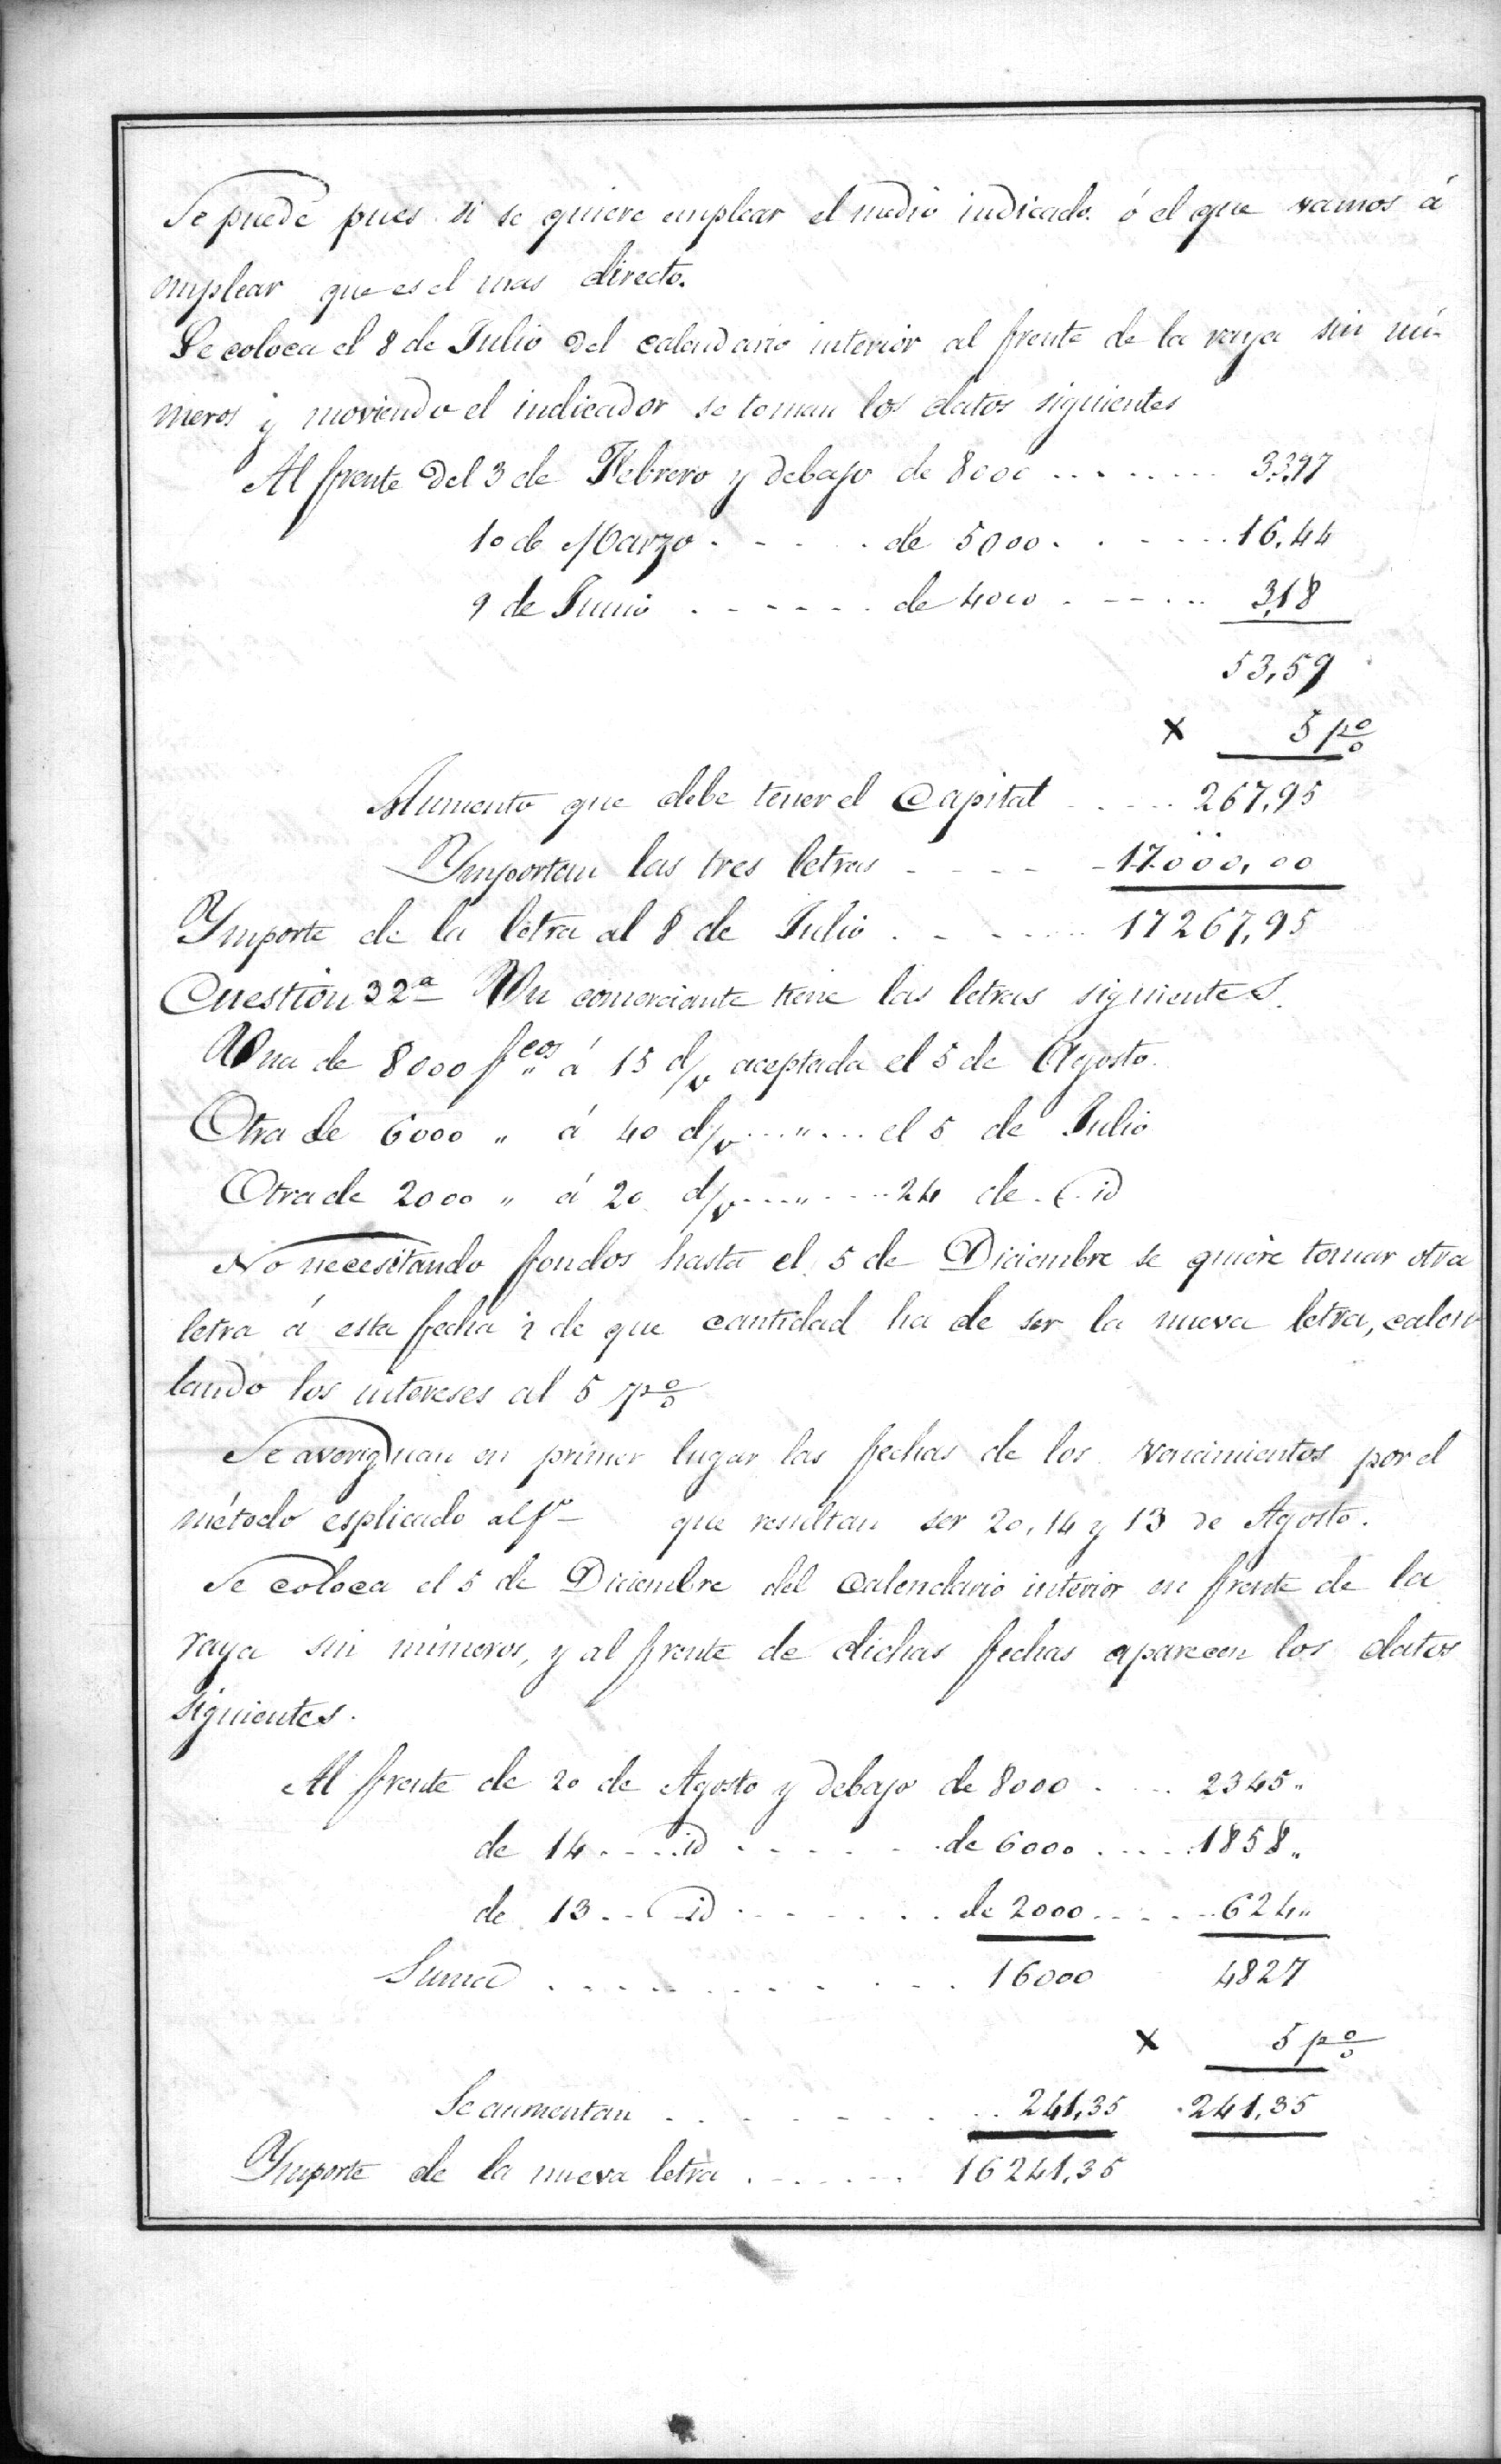 Se puede pues si se quiere emplear el medio indicado ó el que vamos á
emplear que es el mas directo.
Se coloca el 8 de Julio del calendario interior al frente de la raya sin nú-
meros y moviendo el indicador se toman los datos siguientes
Al frente del 3 de Febrero y debajo de 8000 ........ 33,97
10 de Marzo ..... de 5000 ...... 16,44
9 de Junio ...... de 4000 ..... 3,18
53,59
× 5 p%
Aumento que debe tener el Capital ..... 267,95
Ymportan las tres letras ..... 17000,00
Ymporte de la letra al 8 de Julio ...... 17267,95
Cuestion 32ª Un comerciante tiene las letras siguientes.
Una de 8000 f.cos á 15 d/v aceptada el 5 de Agosto.
Otra de 6000 " á 40 d/v ... " ... el 5 de Julio
Otra de 2000 " á 20 d/v .... " .... 24 de id
No necesitando fondos hasta el 5 de Diciembre se quiere tomar otra
letra á esta fecha ¿ de que cantidad ha de ser la nueva letra, calcu
lando los intereses al 5 p%
Se averiguan en primer lugar las fechas de los vencimientos por el
método esplicado al fº que resultan ser 20, 14 y 13 de Agosto.
Se coloca el 5 de Diciembre del calendario interior en frente de la
raya sin números, y al frente de dichas fechas aparecen los datos
siguientes.
Al frente de 20 de Agosto y debajo de 8000 .... 2345 "
de 14 .... id ...... de 6000 .... 1858 "
de 13 ... id ...... de 2000 ..... 624 "
Suma ............ 16000 4827
× 5 p%
Se aumentan ......... 241,35 241,35
Ymporte de la nueva letra ...... 16241,35